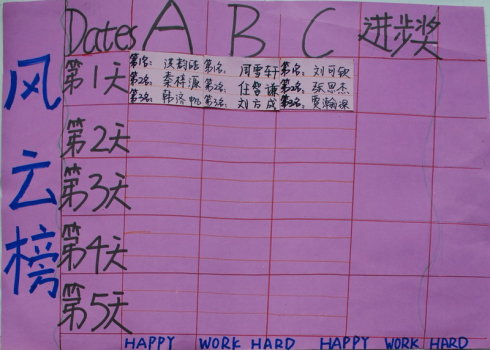 风云榜
Dates A B C 进步奖
第1天
第1名: 第1名: 周雪轩 第1名: 刘可欣
第2名: 秦梓源 第2名: 任哲谦 第2名: 张思杰
第3名: 第3名: 刘方成 第3名: 贾瀚
第2天
第3天
第4天
第5天
HAPPY WORK HARD HAPPY WORK HARD